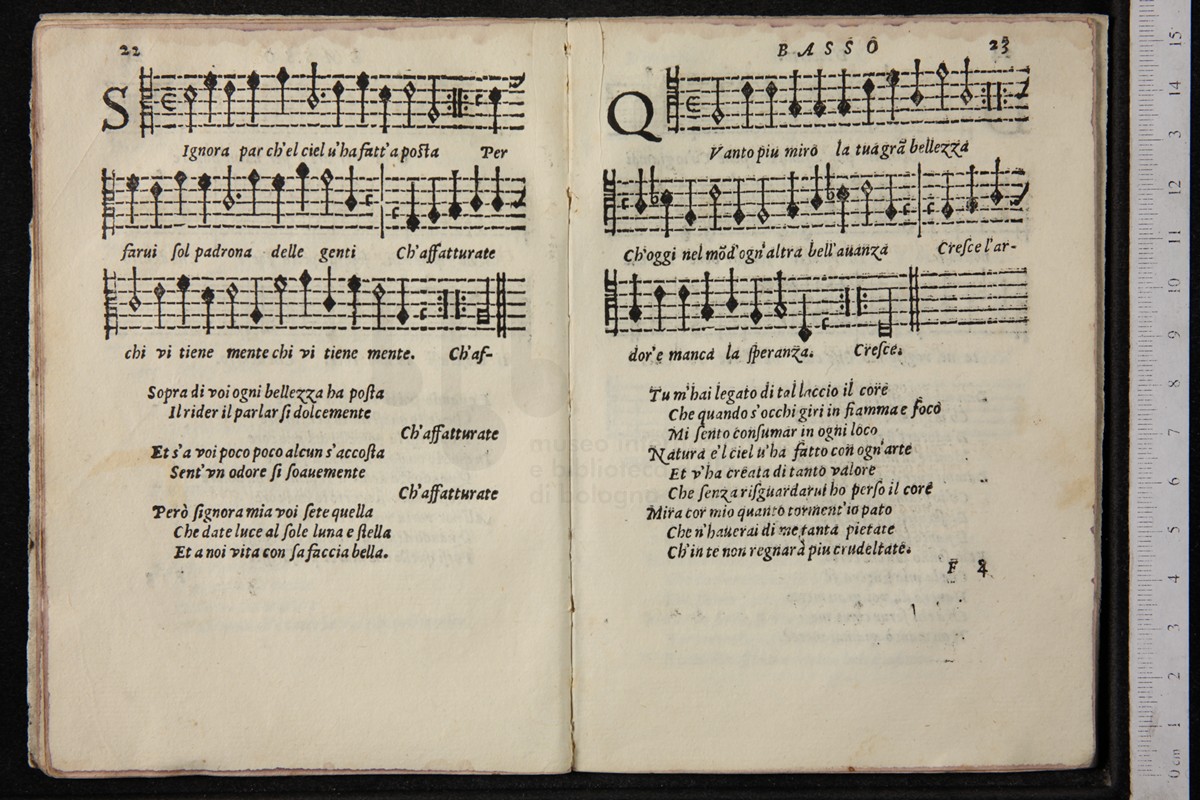 22
S
Ignora par ch'el ciel u'ha fatt'a posta Per
farui sol padrona delle genti Ch'affatturate
chi vi tiene mente chi vi tiene mente. Ch'af-
Sopra di voi ogni bellezza ha posta
Il rider il parlar si dolcemente
Ch'affatturate
Et s'a voi poco poco alcun s'accosta
Sent'vn odore si soauemente
Ch'affatturate
Però signora mia voi sete quella
Che date luce al sole luna e stella
Et a noi vita con sa faccia bella.
BASSO 23
Q
Vanto piu miro la tua grã bellezza
Ch'oggi nel mõd'ogn'altra bell'auanza Cresce l'ar-
dor'e manca la speranza. Cresce.
Tu m'hai legato di tal laccio il core
Che quando s'occhi giri in fiamma e foco
Mi sento consumar in ogni loco
Natura e'l ciel u'ha fatto con ogn'arte
Et v'ha creata di tanto valore
Che senza risguardarui ho perso il core
Mira cor mio quanto torment'io pato
Che n'hauerai di me tanta pietate
Ch'in te non regnarà piu crudeltate.
F
museo
e biblioteca
di bologna
0 cm 1 2 3 4 5 6 7 8 9 10 11 12 13 14 15